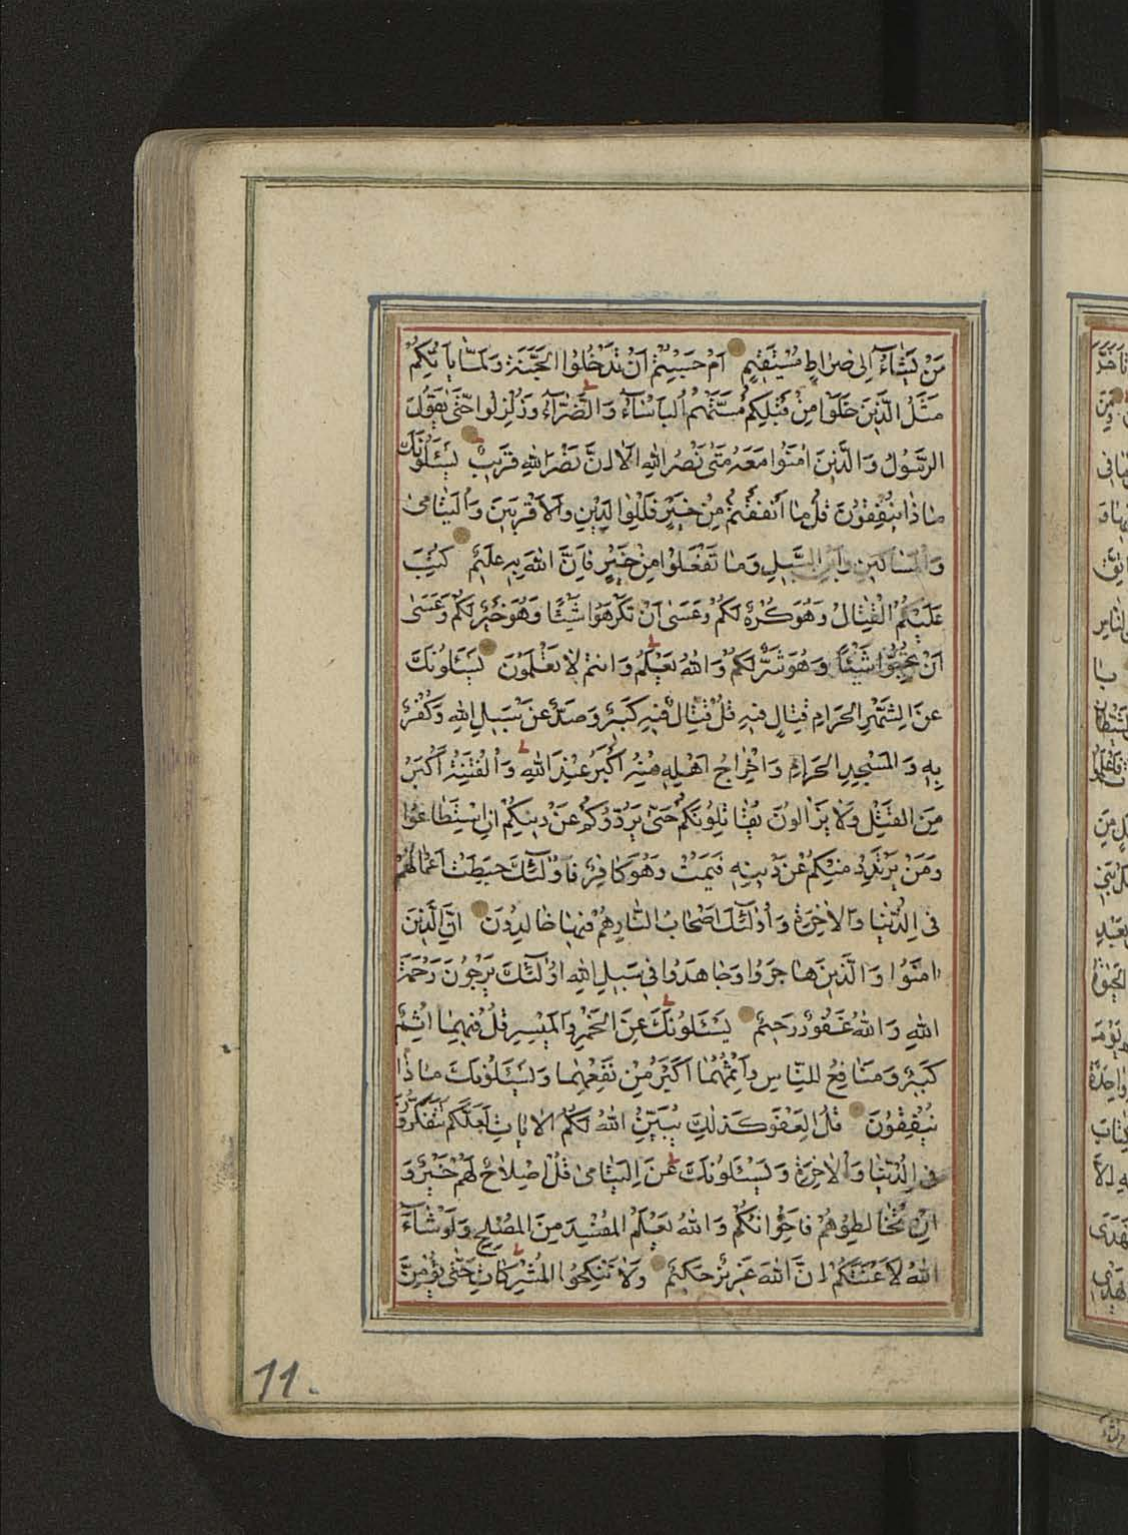 مَنْ يَشَاءُ اِلٰى صِرَاطٍ مُسْتَقِيمٍ اَمْ حَسِبْتُمْ اَنْ تَدْخُلُوا الْجَنَّةَ وَلَمَّا يَأْتِكُمْ
مَثَلُ الَّذِينَ خَلَوْا مِنْ قَبْلِكُمْ مَسَّتْهُمُ الْبَأْسَاءُ وَالضَّرَّاءُ وَزُلْزِلُوا حَتّٰى يَقُولَ
الرَّسُولُ وَالَّذِينَ اٰمَنُوا مَعَهُ مَتٰى نَصْرُ اللهِ اَلَا اِنَّ نَصْرَ اللهِ قَرِيبٌ يَسْئَلُونَكَ
مَاذَا يُنْفِقُونَ قُلْ مَا اَنْفَقْتُمْ مِنْ خَيْرٍ فَلِلْوَالِدَيْنِ وَالْاَقْرَبِينَ وَالْيَتَامٰى
وَالْمَسَاكِينِ وَابْنِ السَّبِيلِ وَمَا تَفْعَلُوا مِنْ خَيْرٍ فَاِنَّ اللهَ بِهِ عَلِيمٌ كُتِبَ
عَلَيْكُمُ الْقِتَالُ وَهُوَ كُرْهٌ لَكُمْ وَعَسٰى اَنْ تَكْرَهُوا شَيْئًا وَهُوَ خَيْرٌ لَكُمْ وَعَسٰى
اَنْ تُحِبُّوا شَيْئًا وَهُوَ شَرٌّ لَكُمْ وَاللهُ يَعْلَمُ وَاَنْتُمْ لَا تَعْلَمُونَ يَسْئَلُونَكَ
عَنِ الشَّهْرِ الْحَرَامِ قِتَالٍ فِيهِ قُلْ قِتَالٌ فِيهِ كَبِيرٌ وَصَدٌّ عَنْ سَبِيلِ اللهِ وَكُفْرٌ
بِهِ وَالْمَسْجِدِ الْحَرَامِ وَاِخْرَاجُ اَهْلِهِ مِنْهُ اَكْبَرُ عِنْدَ اللهِ وَالْفِتْنَةُ اَكْبَرُ
مِنَ الْقَتْلِ وَلَا يَزَالُونَ يُقَاتِلُونَكُمْ حَتّٰى يَرُدُّوكُمْ عَنْ دِينِكُمْ اِنِ اسْتَطَاعُوا
وَمَنْ يَرْتَدِدْ مِنْكُمْ عَنْ دِينِهِ فَيَمُتْ وَهُوَ كَافِرٌ فَاُولٰئِكَ حَبِطَتْ اَعْمَالُهُمْ
فِى الدُّنْيَا وَالْاٰخِرَةِ وَاُولٰئِكَ اَصْحَابُ النَّارِ هُمْ فِيهَا خَالِدُونَ اِنَّ الَّذِينَ
اٰمَنُوا وَالَّذِينَ هَاجَرُوا وَجَاهَدُوا فِى سَبِيلِ اللهِ اُولٰئِكَ يَرْجُونَ رَحْمَةَ
اللهِ وَاللهُ غَفُورٌ رَحِيمٌ يَسْئَلُونَكَ عَنِ الْخَمْرِ وَالْمَيْسِرِ قُلْ فِيهِمَا اِثْمٌ
كَبِيرٌ وَمَنَافِعُ لِلنَّاسِ وَاِثْمُهُمَا اَكْبَرُ مِنْ نَفْعِهِمَا وَيَسْئَلُونَكَ مَاذَا
يُنْفِقُونَ قُلِ الْعَفْوَ كَذٰلِكَ يُبَيِّنُ اللهُ لَكُمُ الْاٰيَاتِ لَعَلَّكُمْ تَتَفَكَّرُونَ
فِى الدُّنْيَا وَالْاٰخِرَةِ وَيَسْئَلُونَكَ عَنِ الْيَتَامٰى قُلْ اِصْلَاحٌ لَهُمْ خَيْرٌ وَ
اِنْ تُخَالِطُوهُمْ فَاِخْوَانُكُمْ وَاللهُ يَعْلَمُ الْمُفْسِدَ مِنَ الْمُصْلِحِ وَلَوْ شَاءَ
اللهُ لَاَعْنَتَكُمْ اِنَّ اللهَ عَزِيزٌ حَكِيمٌ وَلَا تَنْكِحُوا الْمُشْرِكَاتِ حَتّٰى يُؤْمِنَّ
11.